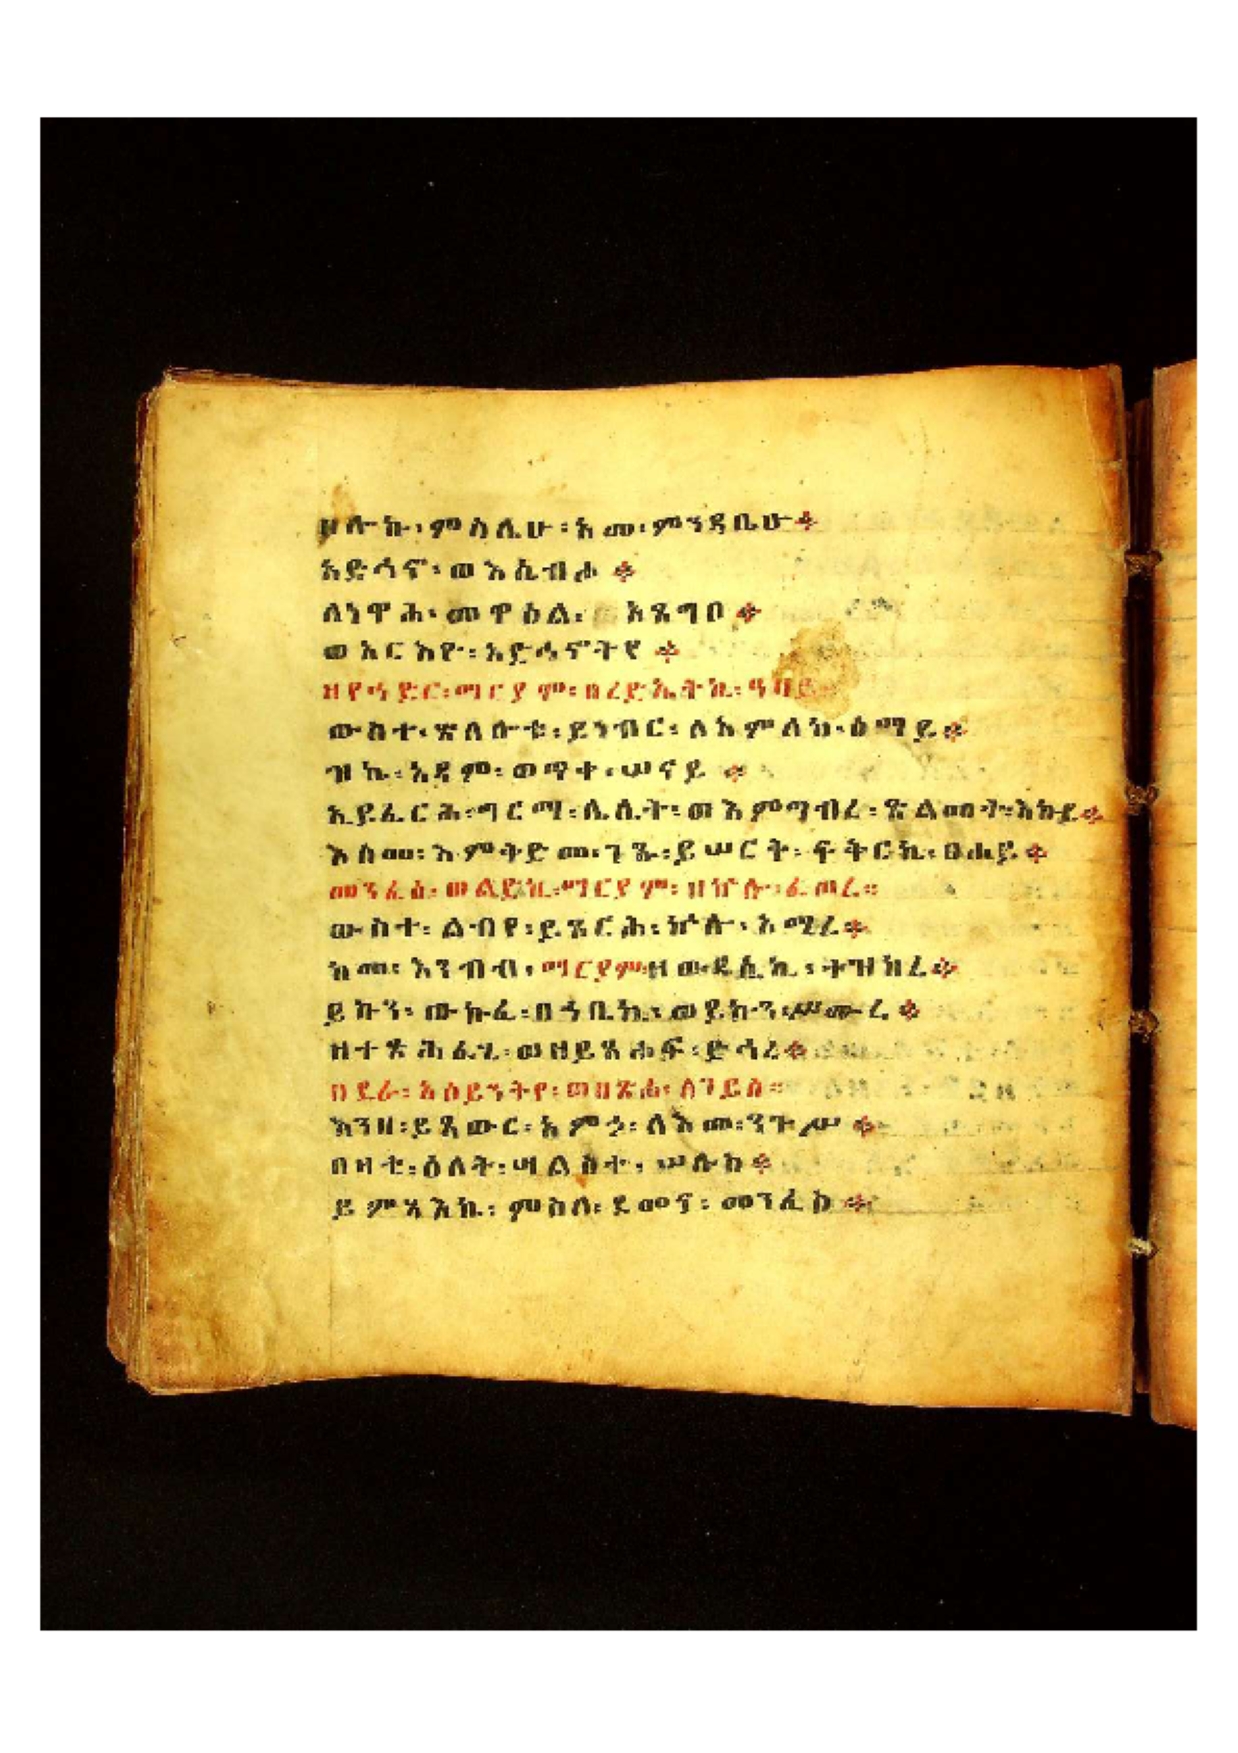 ሀሉኩ፡ ምስሌሁ፡ አመ፡ ምንዳቤሁ፨
አድኅኖ፡ ወእሴብሖ፨
ለነዋሕ፡ መዋዕል፡ አጸግቦ፨
ወአርእዮ፡ አድኅኖትየ፨
ዘየኀድር፡ ማርያም፡ በረድኤትኪ፡
ውስተ፡ ጽላሎቱ፡ ይነብር፡ ለአምላከ፡ ሰማይ፨
ዝኬ፡ አዳም፡ ወማተ፡ ሠናይ፨
ኢይፈርሕ፡ ግርማ፡ ሌሊት፡ ወእምግብረ፡ ጽልመት፡ እኩይ፨
እስመ፡ እምቅድመ፡ ገጹ፡ ይሠርቅ፡ ፍቅርኪ፡ ፀሐይ፨
መንፈሰ፡ ወልድኪ፡ ማርያም፡ ዘኵሎ፡ ፈወረ፨
ውስተ፡ ልብየ፡ ይጼርሕ፡ ኵሎ፡ አሚረ፨
ከመ፡ እንብብ፡ ማርያም፡ ዘውዳሴኪ፡ ትዝክረ፨
ይኩን፡ ውኩፈ፡ በኀቤኪ፡ ወይኩን፡ ሥሙረ፨
ዘተጽሕፈ፡ ወዘይጸሐፍ፡ ድኅረ፨
በደራ፡ አዕይንትየ፡ ወበጽሐ፡ ለገይሰ፨
እንዘ፡ ይጸውር፡ አምኃ፡ ለእመ፡ ንጉሥ፨
በዛቲ፡ ዕለት፡ ሣልስተ፡ ሠሉስ፨
ይምጻእኪ፡ ምስለ፡ ደመና፡ መንፈስ፨